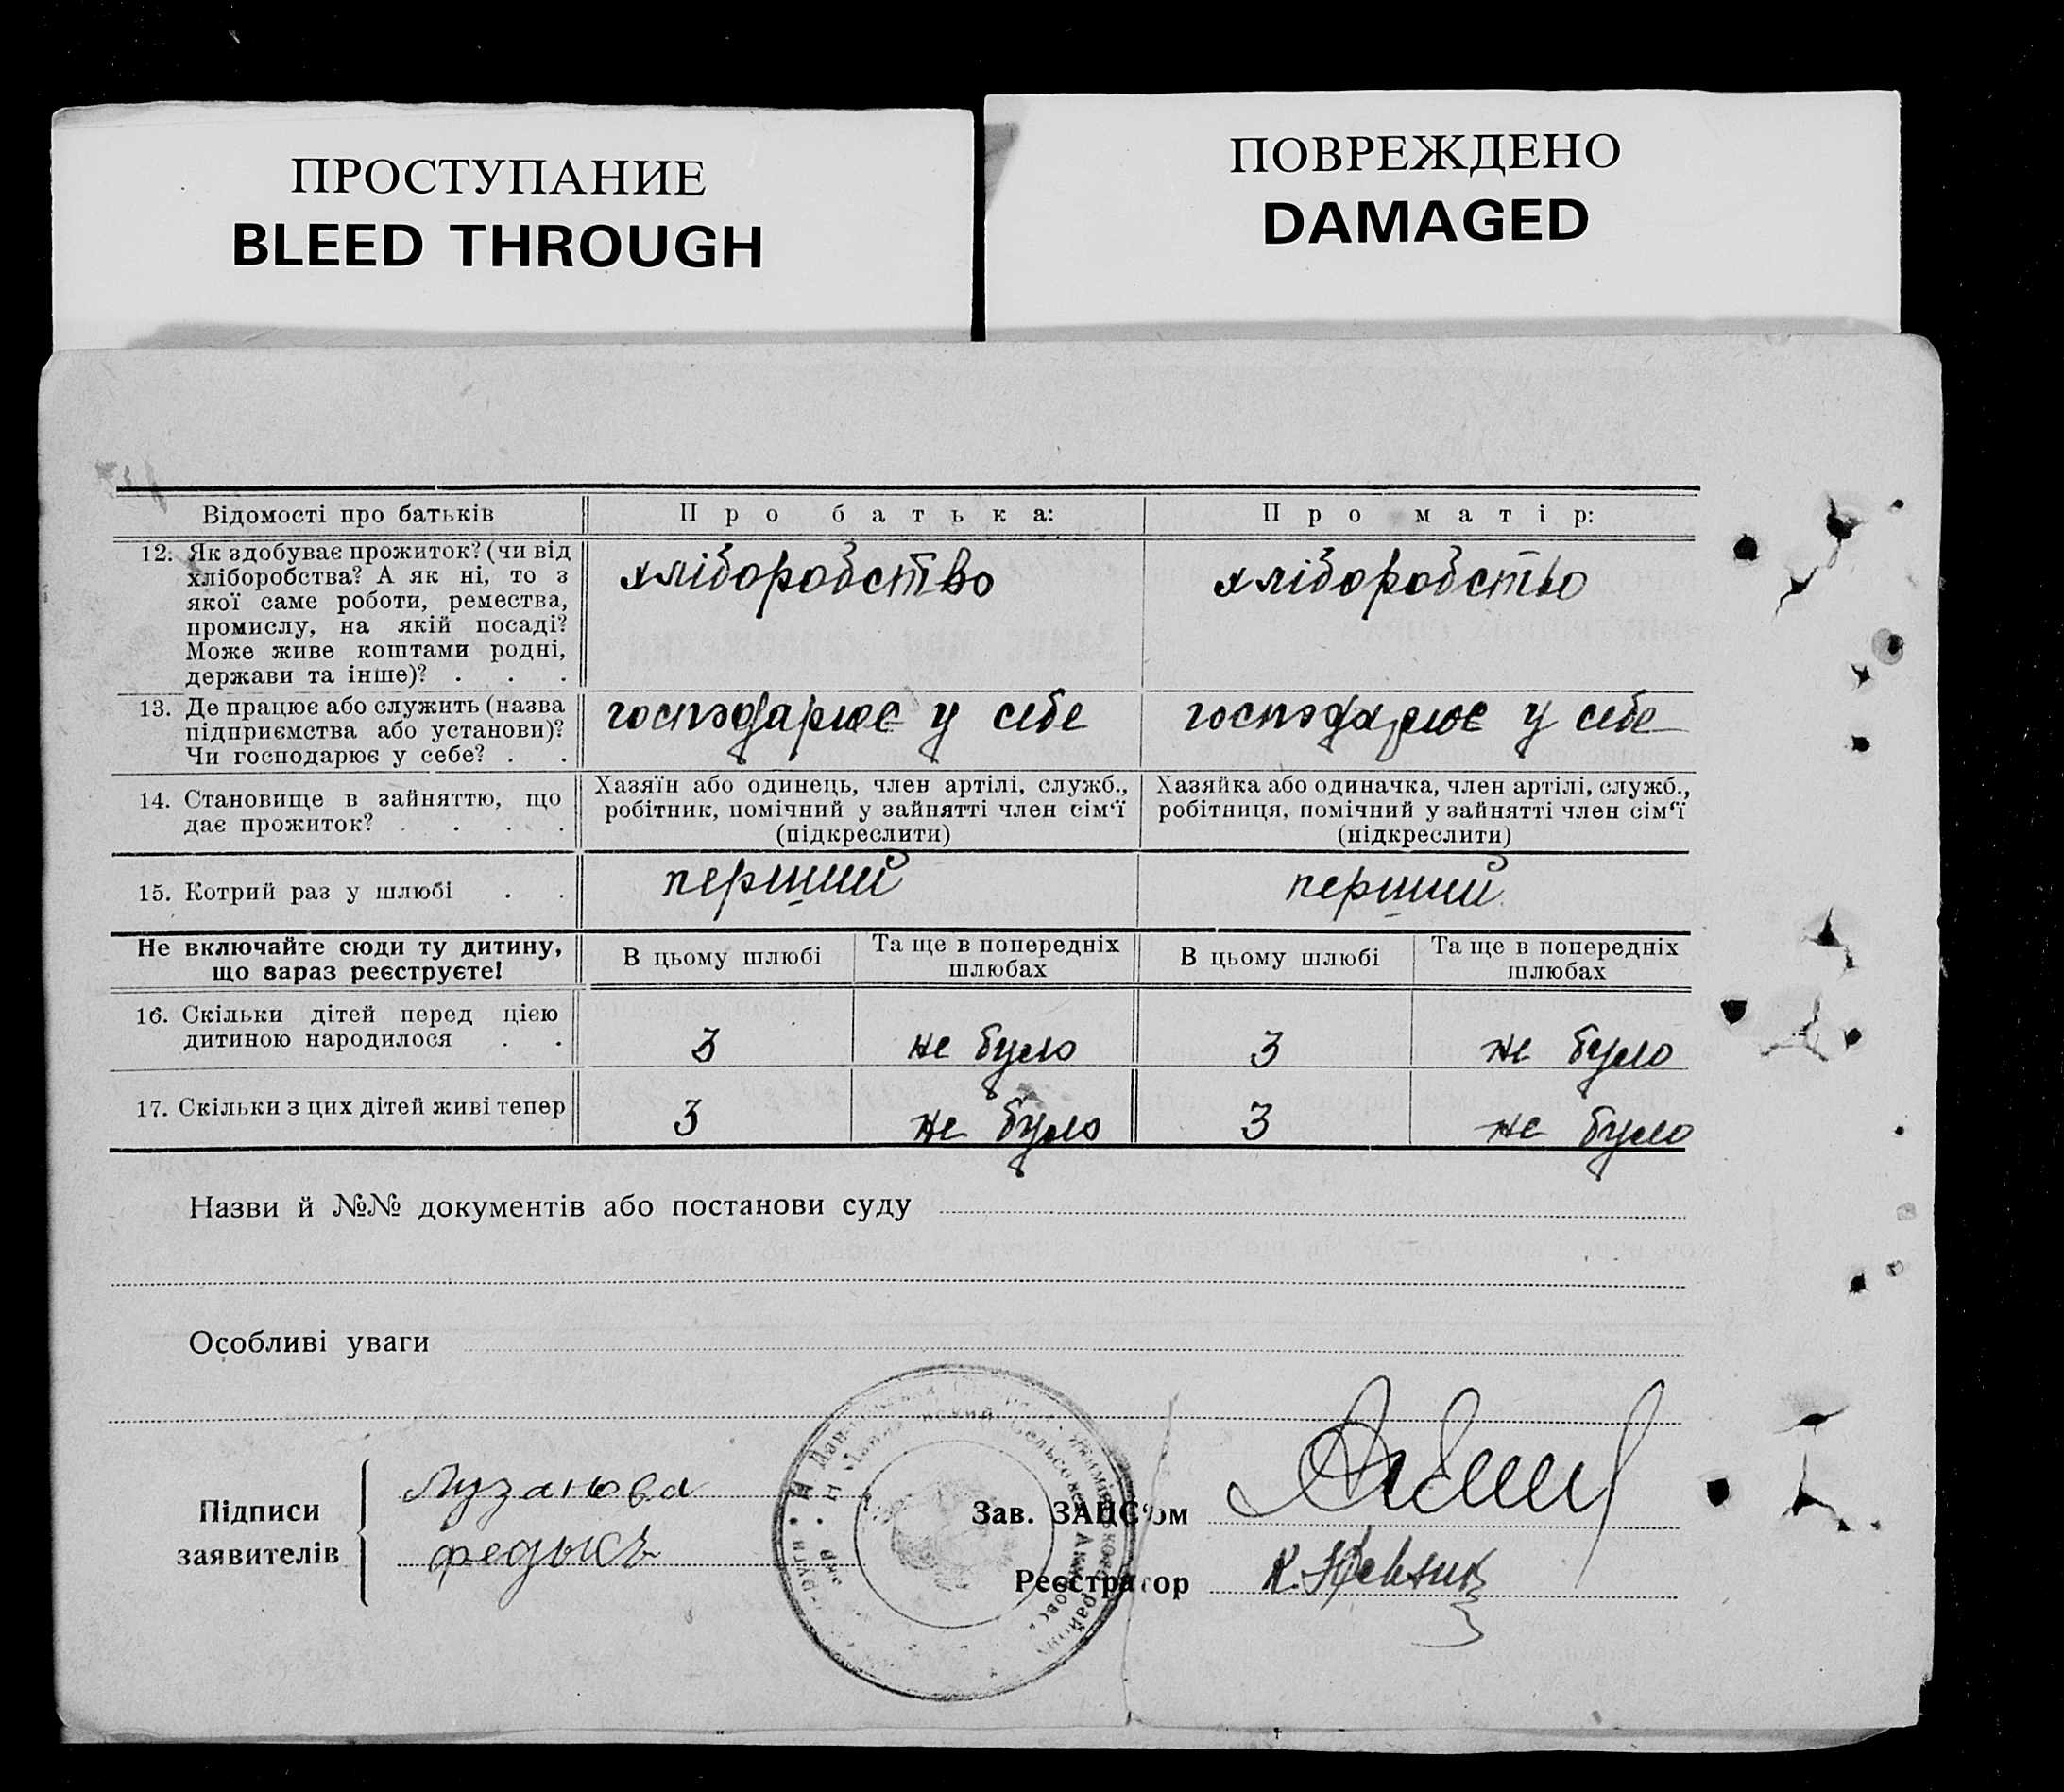 ПРОСТУПАНИЕ
BLEED THROUGH
ПОВРЕЖДЕНО
DAMAGED
Відомості про батьків
Про батька:
Про матір:
12. Як здобуває прожиток? (чи від
хліборобства? А як ні, то з
якої саме роботи, ремества,
промислу, на якій посаді?
Може живе коштами родні,
держави та інше)? . . .
хліборобство
хліборобство
13. Де працює або служить (назва
підприємства або установи)?
Чи господарює у себе? . .
господарює у себе
господарює у себе
14. Становище в зайняттю, що
дає прожиток? . . . .
Хазяїн або одинець, член артілі, служб.,
робітник, помічний у зайнятті член сім'ї
(підкреслити)
Хазяйка або одиначка, член артілі, служб.,
робітниця, помічний у зайнятті член сім'ї
(підкреслити)
15. Котрий раз у шлюбі . .
перший
перший
Не включайте сюди ту дитину,
що зараз реєструєте!
В цьому шлюбі
Та ще в попередніх
шлюбах
В цьому шлюбі
Та ще в попередніх
шлюбах
16. Скільки дітей перед цією
дитиною народилося . .
3
не було
3
не було
17. Скільки з цих дітей живі тепер
3
не було
3
не було
Назви й №№ документів або постанови суду
Особливі уваги
Підписи
заявителів
Лузанова
Зав. ЗАЦС'ом
Реєстратор
К.